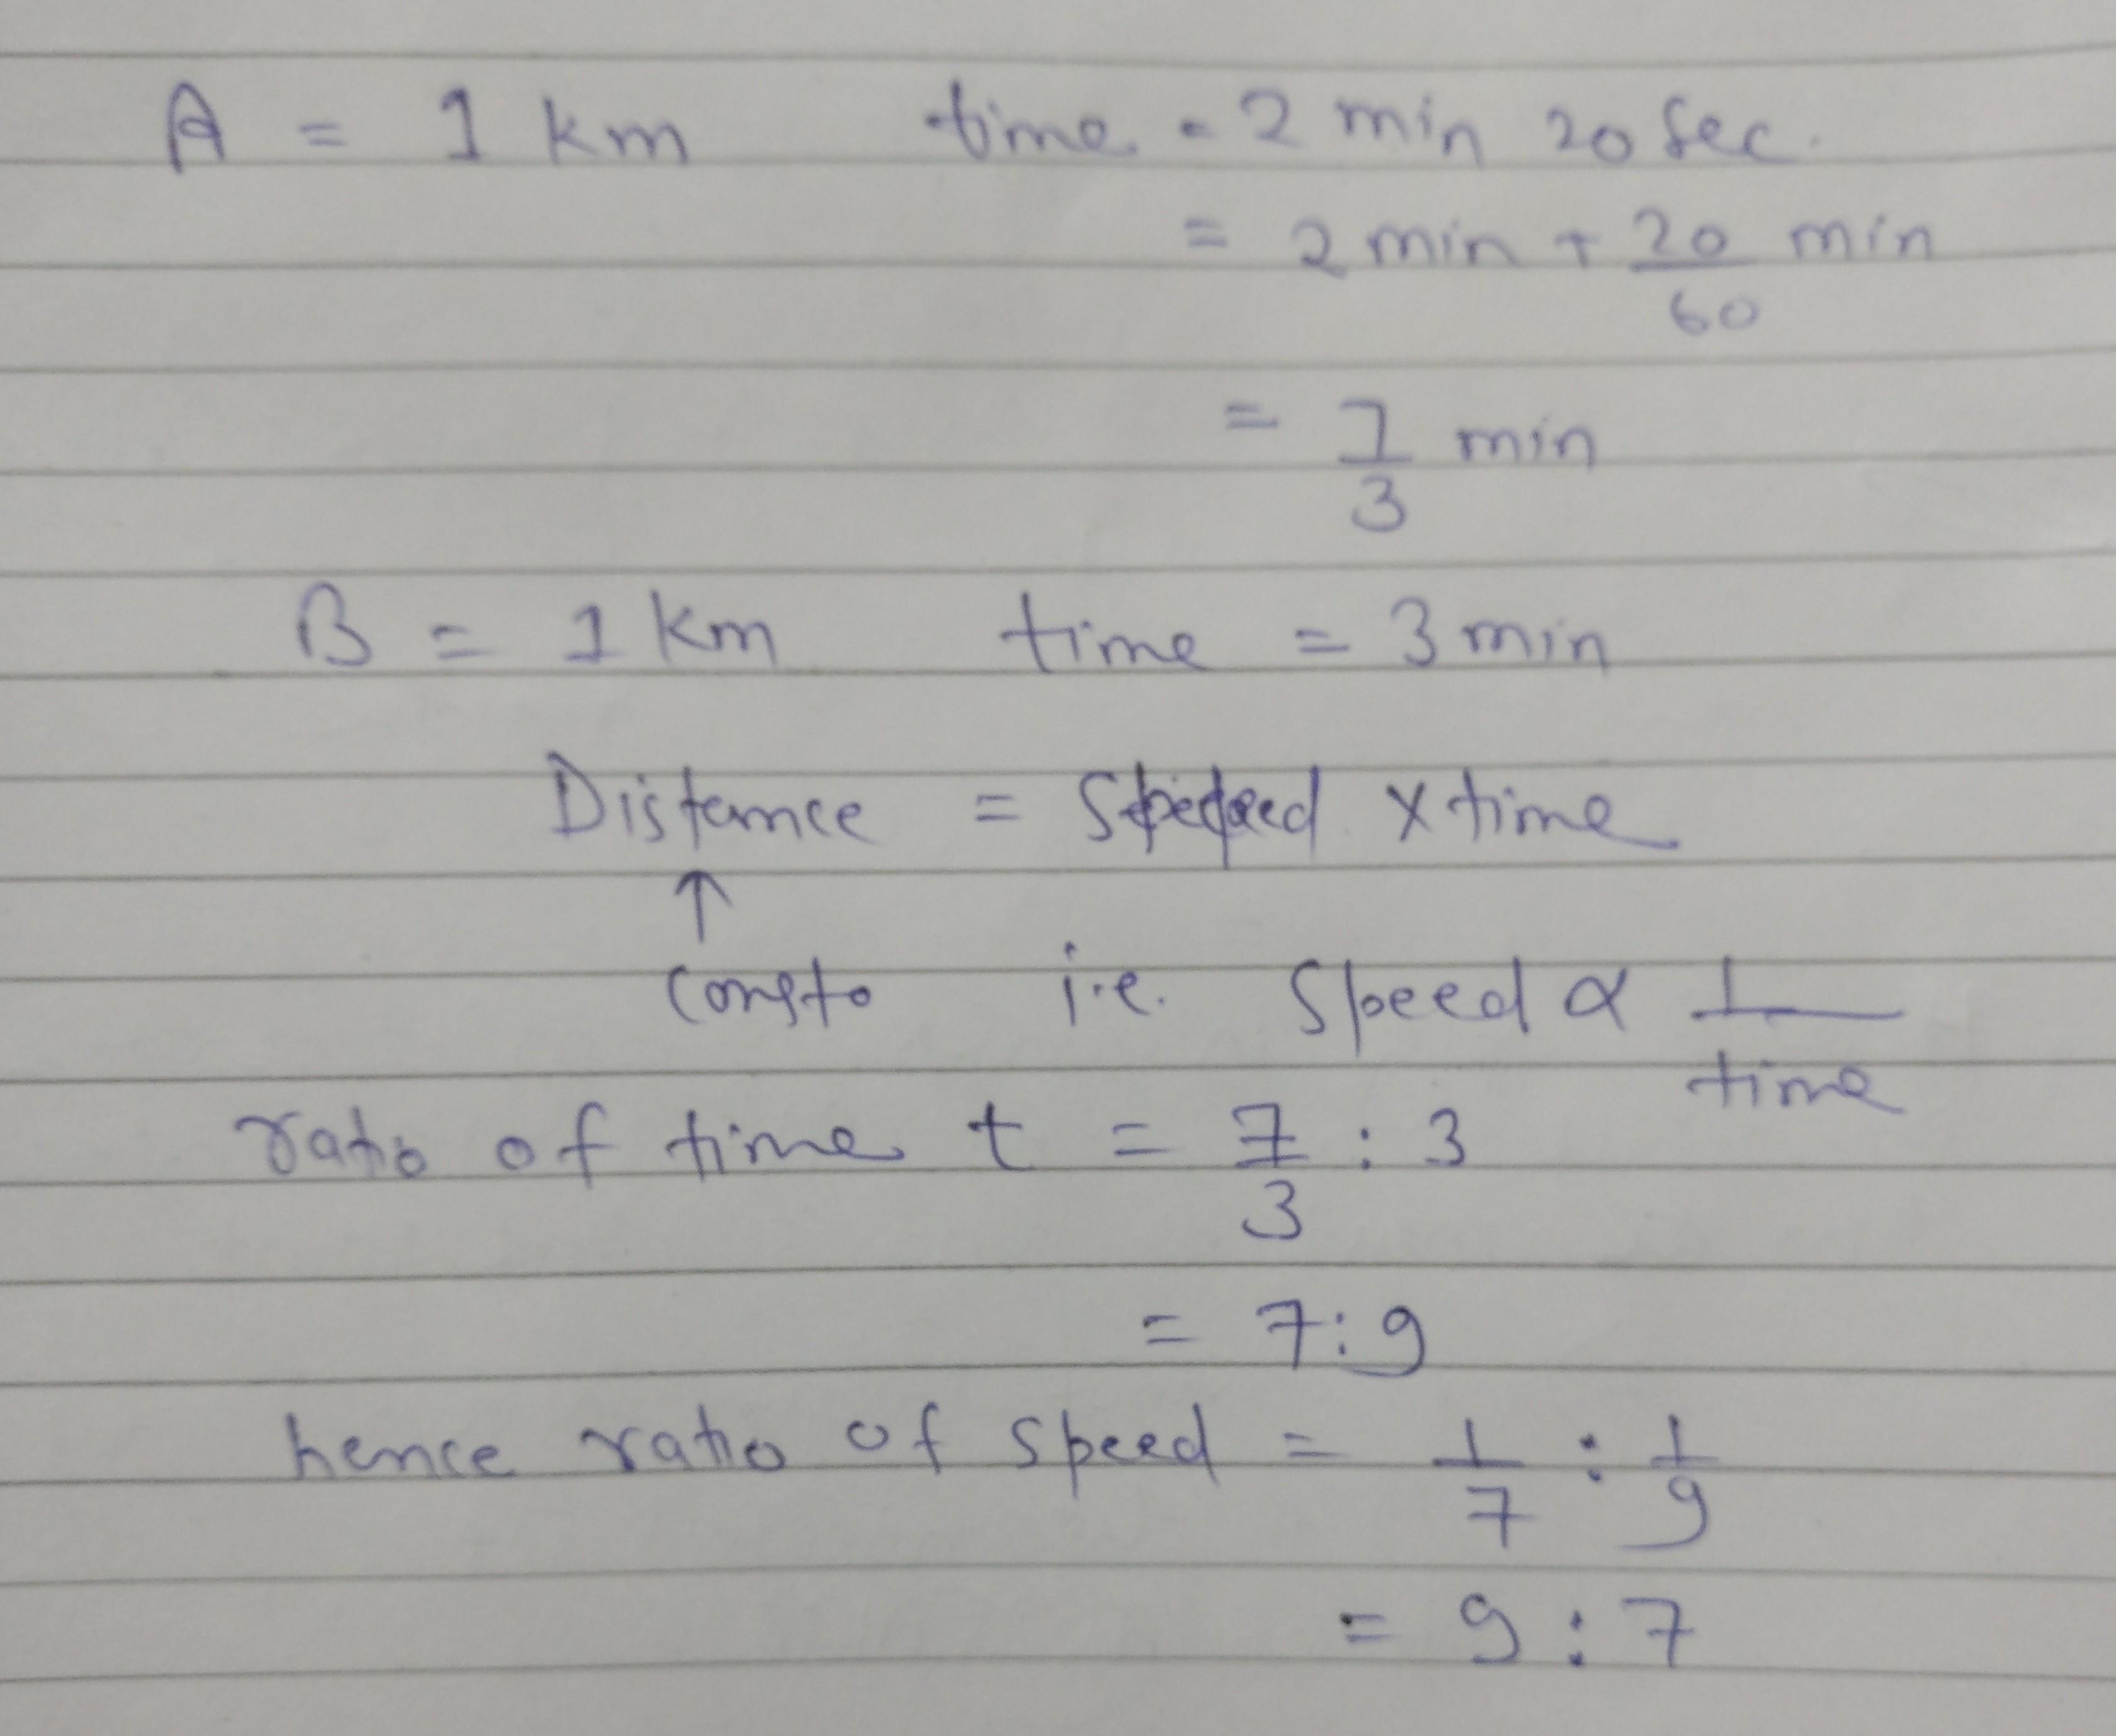 A = 1 km time = 2 min 20 sec.
= 2 min + 20/60 min
= 7/3 min
B = 1 km time = 3 min
Distance = Speed × time
↑
const. i.e. Speed ∝ 1/time
ratio of time t = 7/3 : 3
= 7:9
hence ratio of speed = 1/7 : 1/9
= 9 : 7